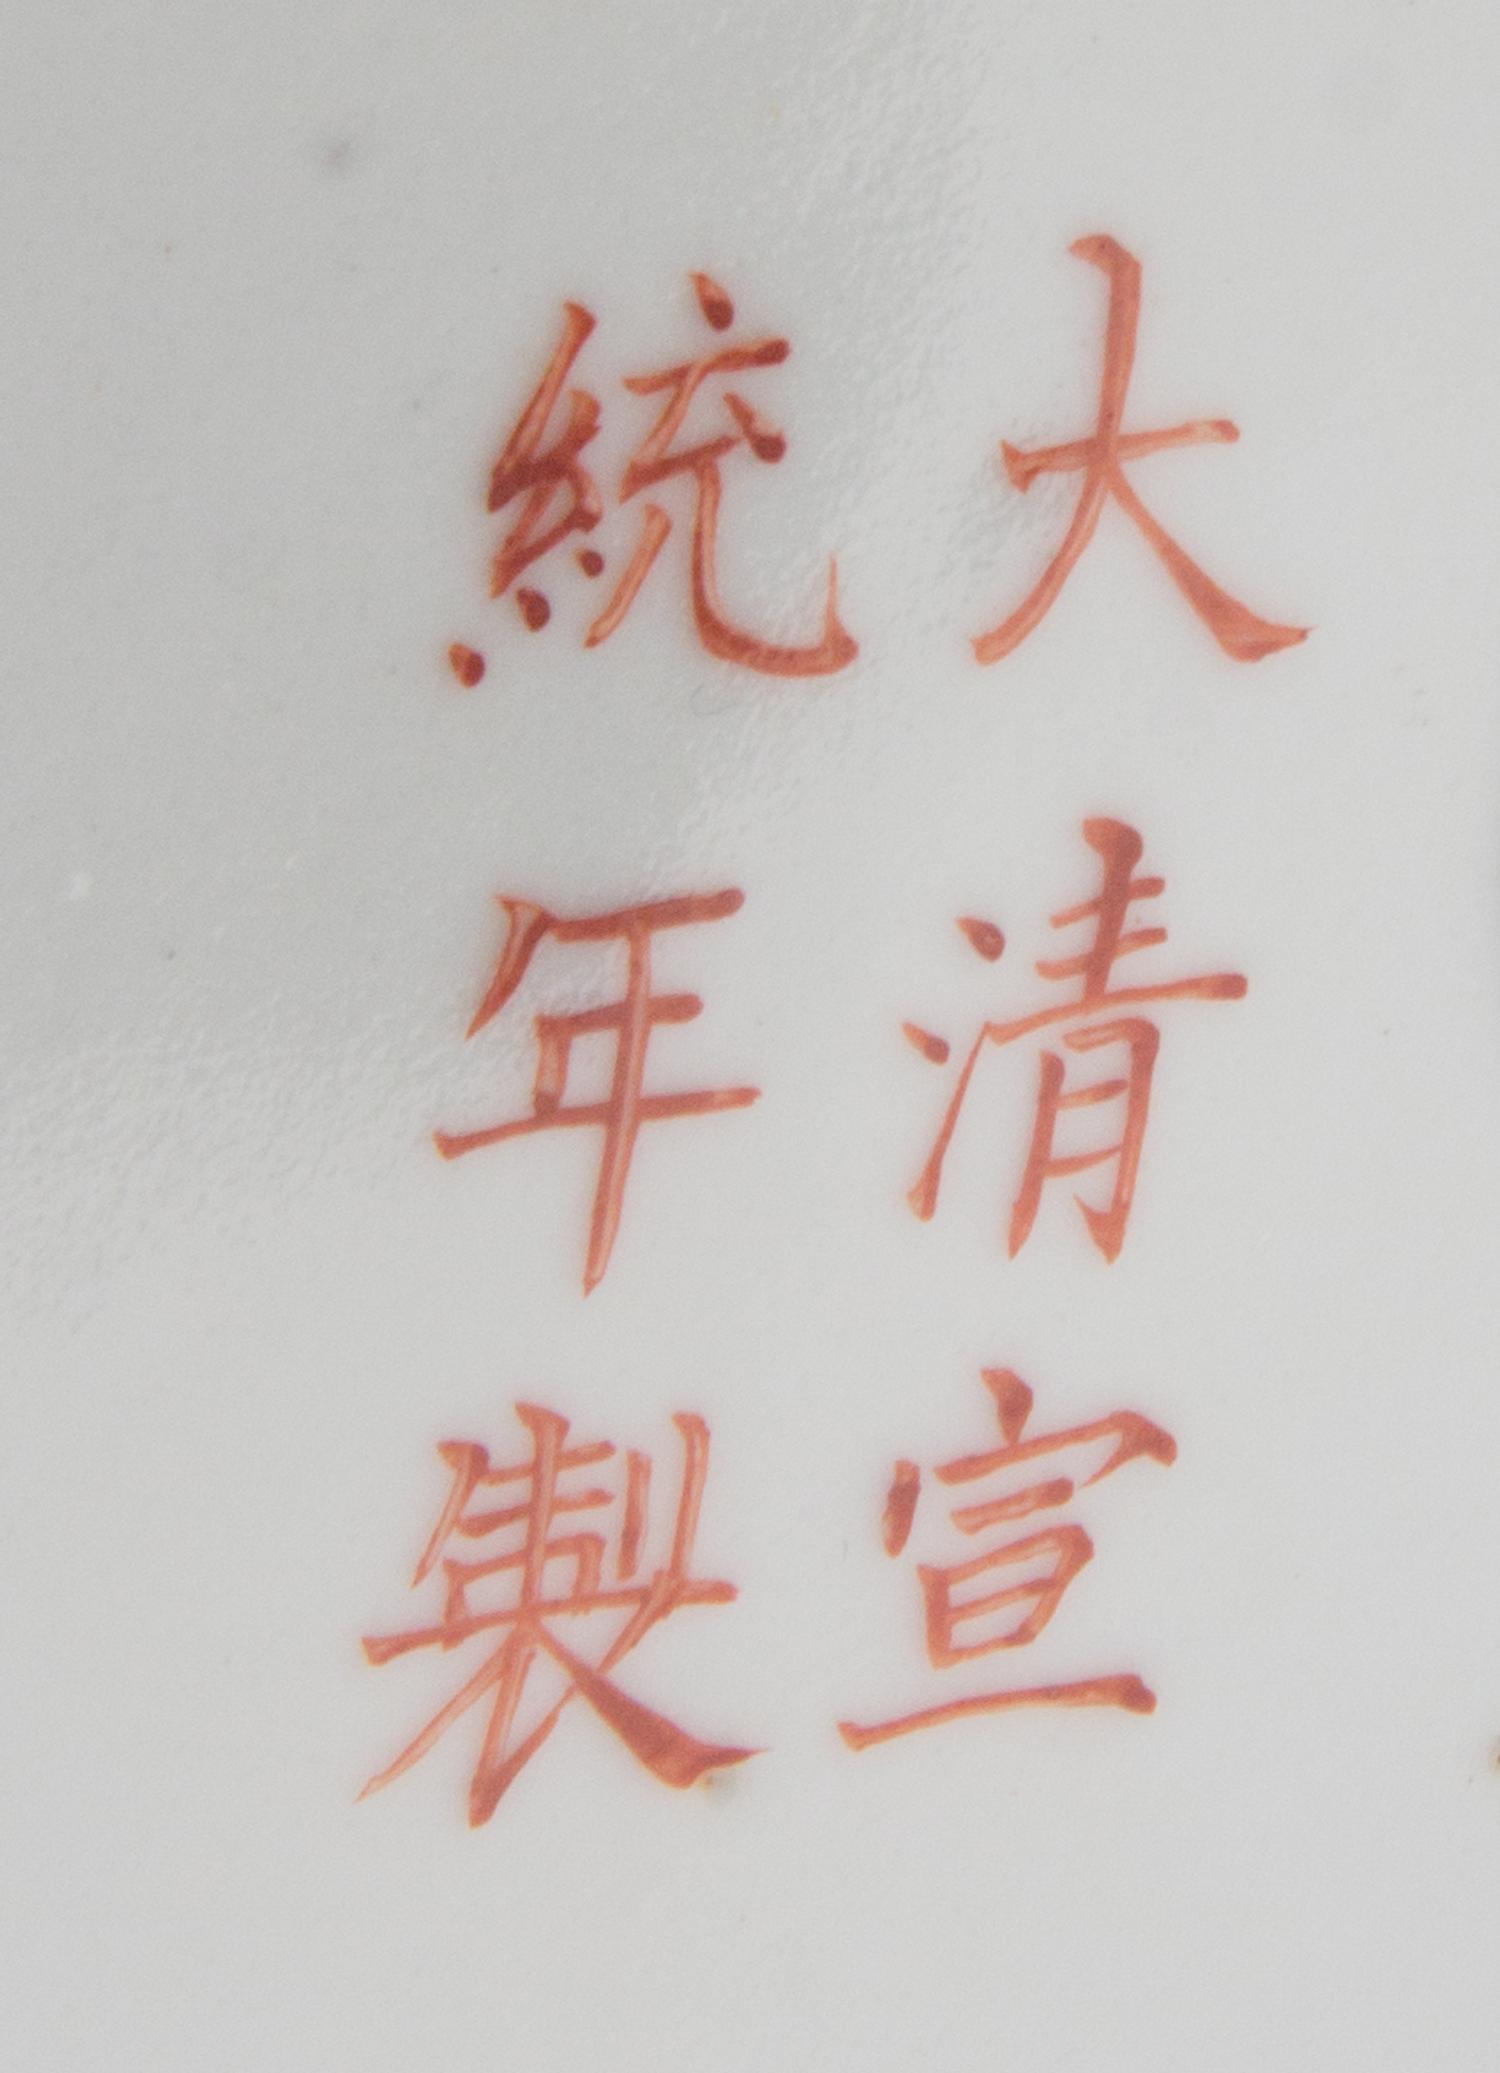 大清宣
統年製